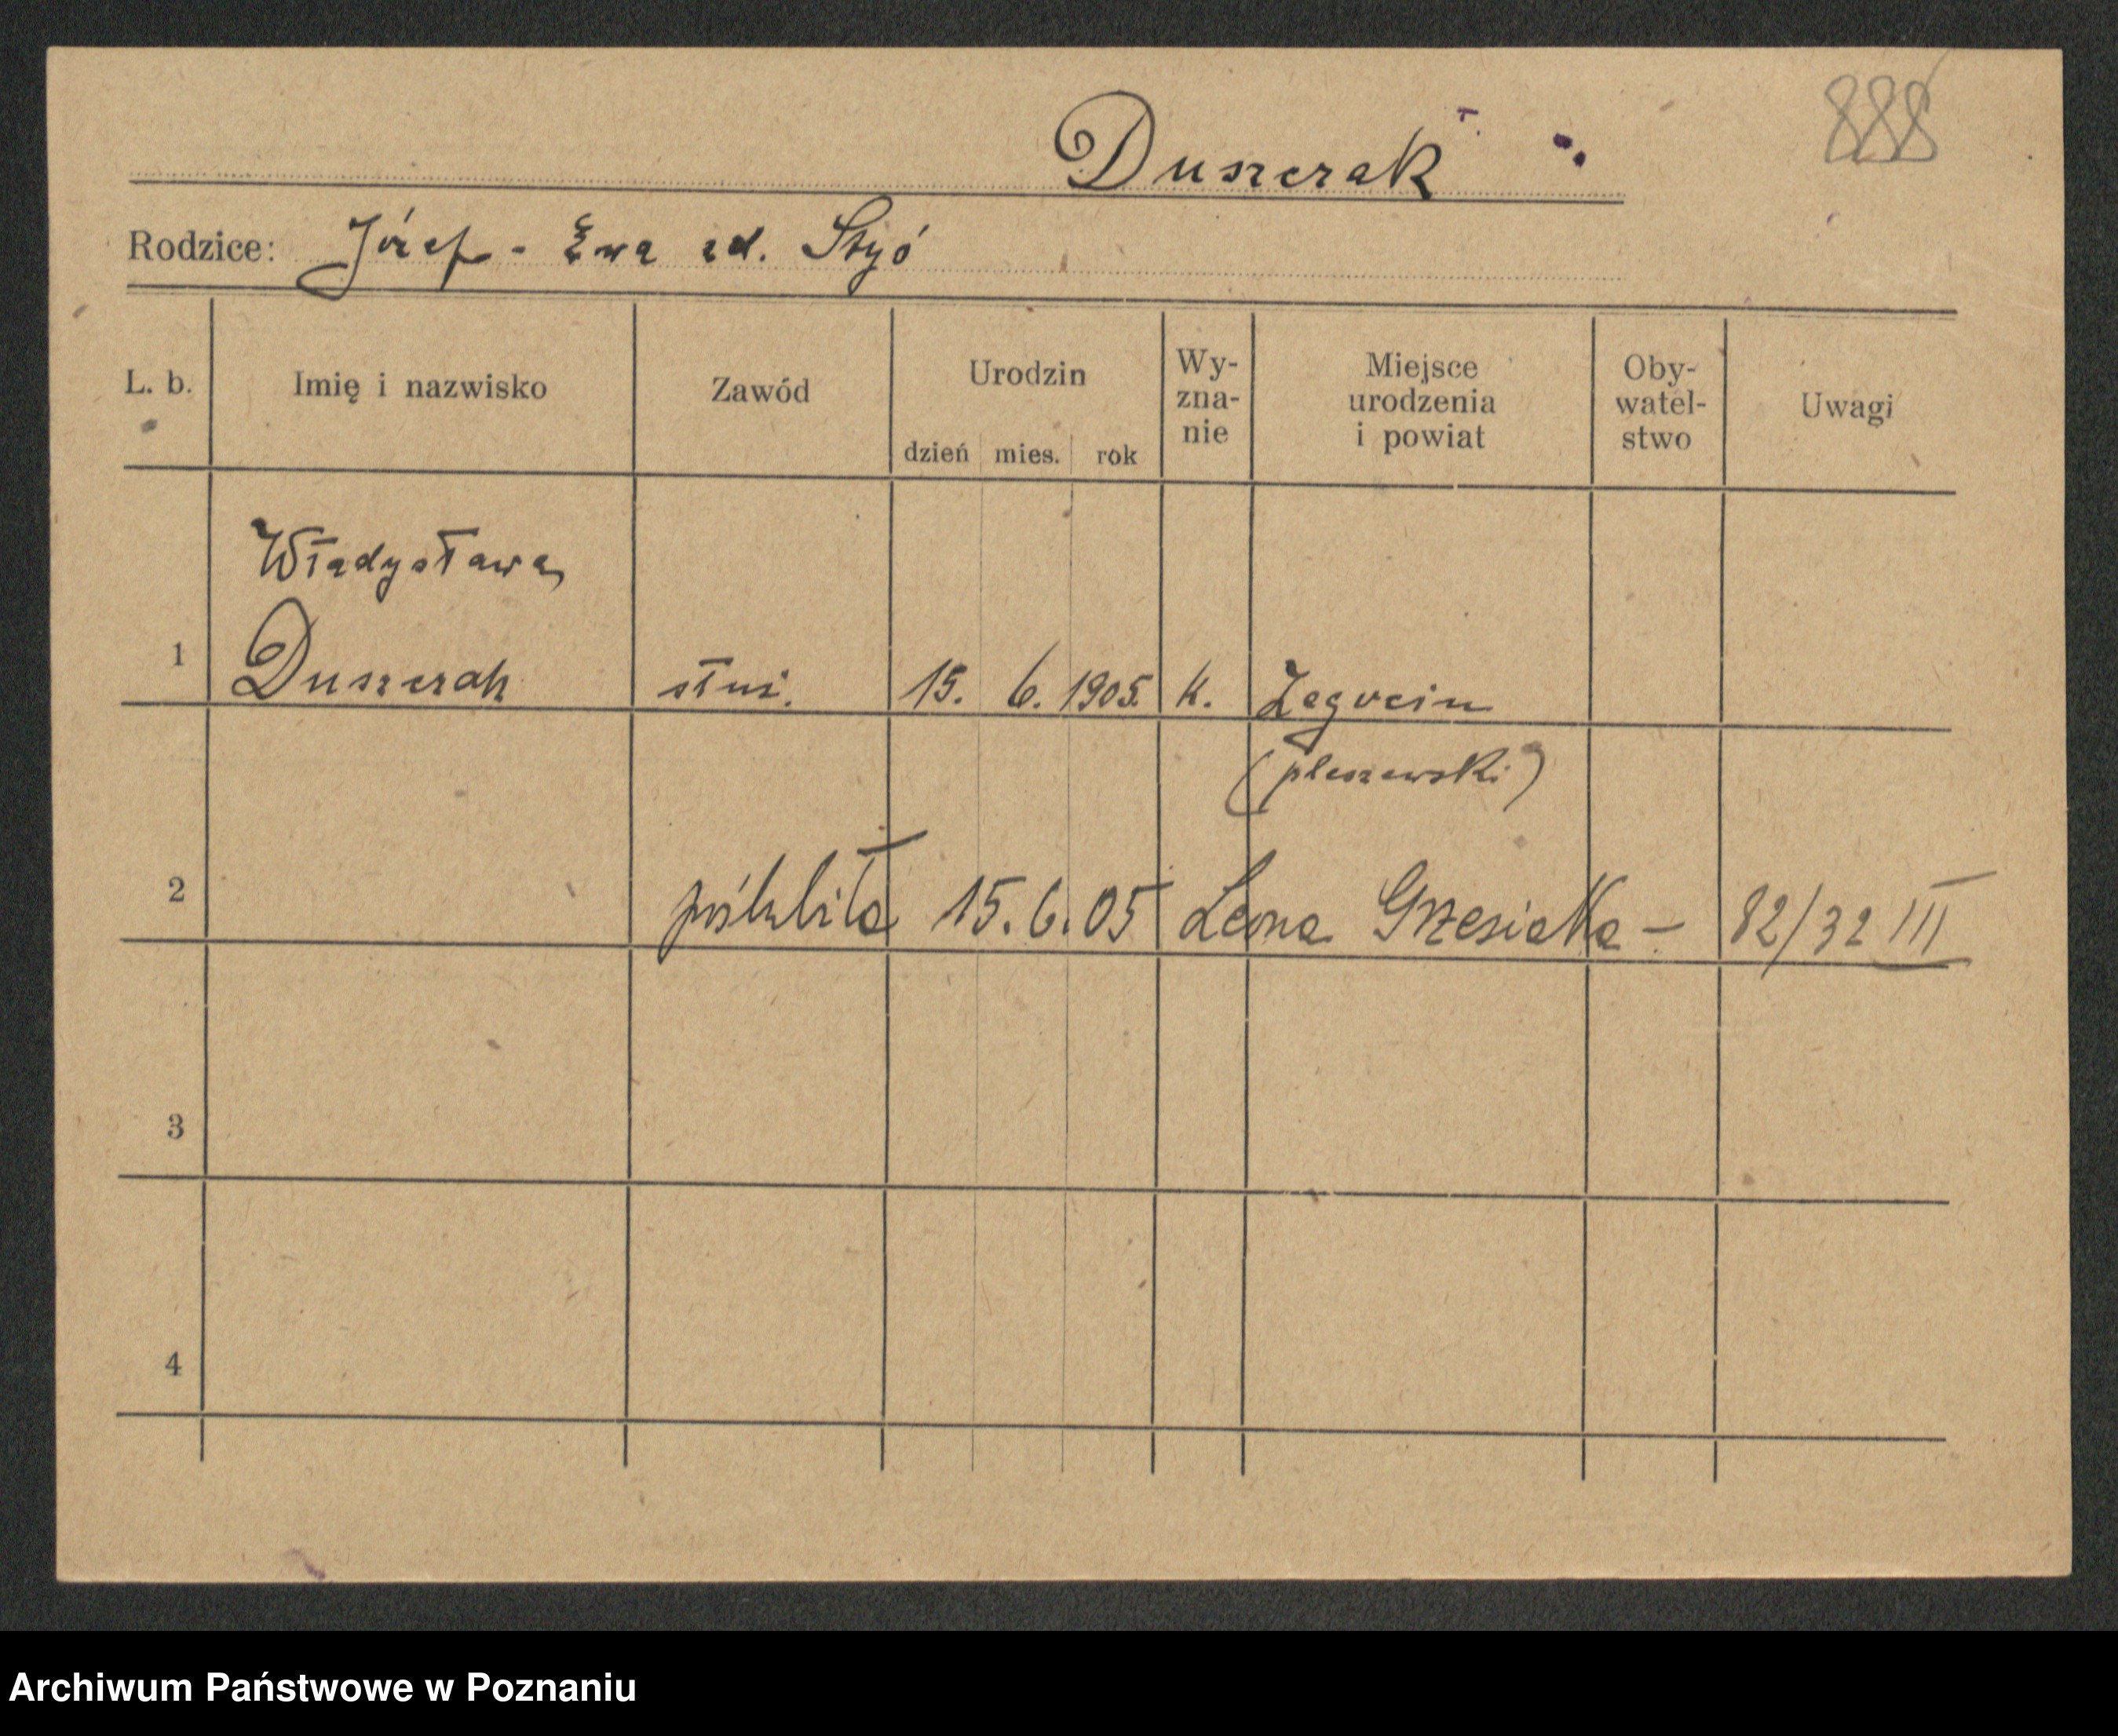 888
Duszczak
Rodzice: Józef - Ewa zd. Styś
L. b. Imię i nazwisko Zawód Urodzin dzień mies. rok Wy-zna-nie Miejsce urodzenia i powiat Oby-watel-stwo Uwagi
Władysława
1 Duszczak służ. 15. 6. 1905. k. Żegocin
(pleszewski)
2 poślubiła 15.6.05 Leona Grzesiaka - 82/32 III
3
4
Archiwum Państwowe w Poznaniu